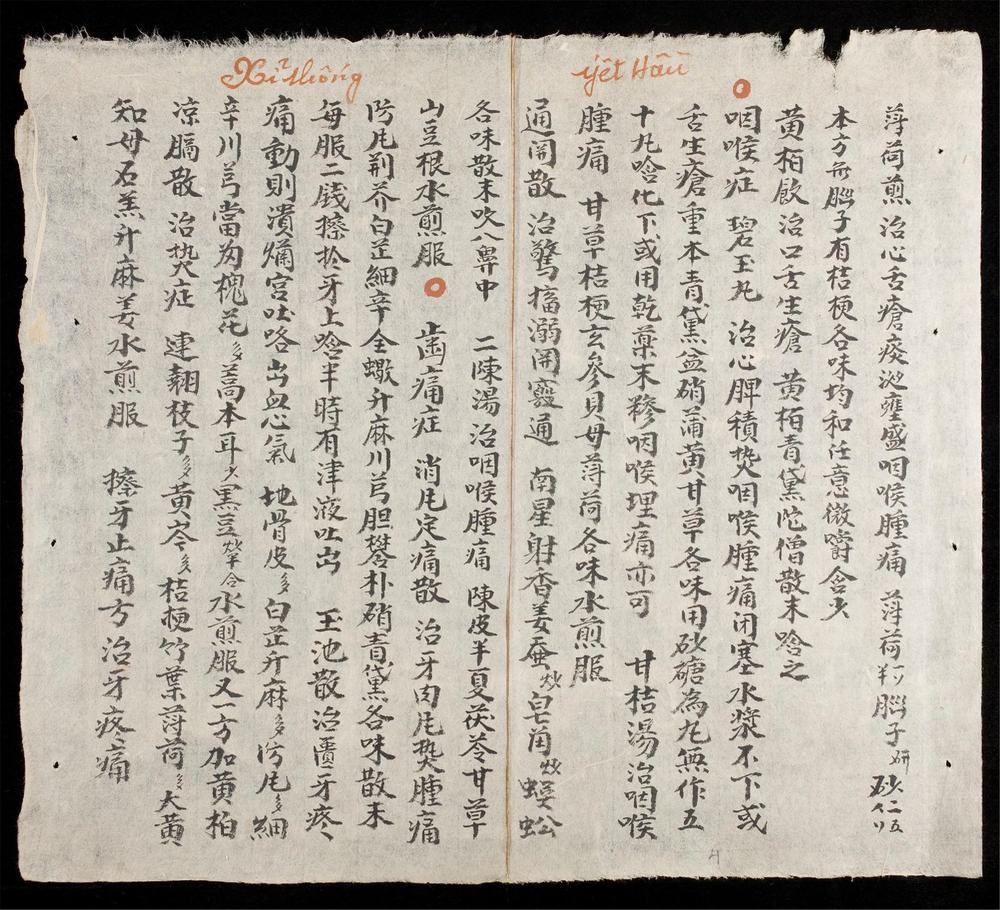 yết Hầu
薄荷煎 治心舌瘡痰涎壅盛咽喉腫痛 薄荷 腦子研 砂仁五
本方無腦子有桔梗各味均和任意微嚼含少
黄栢飲治口舌生瘡 黄栢青黛陀僧散末唅之
咽喉症 碧玉丸 治心脾積熱咽喉腫痛闭塞水漿不下或
舌生瘡重本青黛盆硝蒲黄甘草各味用砂磄為丸無作五
十丸唅化下或用乾藥末糝咽喉埋痛亦可 甘桔湯治咽喉
腫痛 甘草桔梗玄參貝母薄荷各味水煎服
通関散 治驚搐溺関竅通 南星射香姜蚕炒皂角炒蜈蚣
Xỉ thống
各味散末吹入鼻中 二陳湯治咽喉腫痛 陳皮半夏茯苓甘草
山豆根水煎服 歯痛症 消風定痛散 治牙肉風熱腫痛
防風荆芥白芷細辛全蠍升麻川芎胆礬朴硝青黛各味散末
每服二錢擦於牙上唅半時有津液吐出 玉池散治匶牙疼
痛動則潰爛宫 咯出血心氣 地骨皮多白芷升麻多防風多細
辛川芎當为槐花多藁本耳少黑豆炒半合水煎服又一方加黄栢
凉膈散 治熱症 連翹枝子多黄芩多桔梗竹葉薄荷多大黄
知母石羔升麻姜水煎服 擦牙止痛方 治牙疼痛